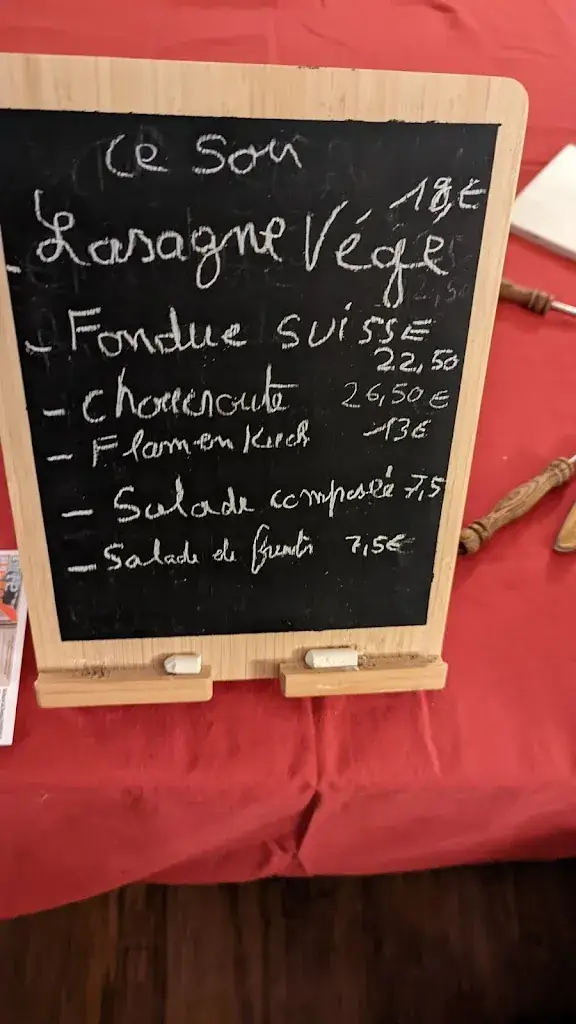 Ce Soir
18,€
- Lasagne Végé
- Fondue SUiSSE
22,50
- Choucroute 26,50€
- Flamenkuch 13€
- Salade composée 7,5
- Salade de fruits 7,5€